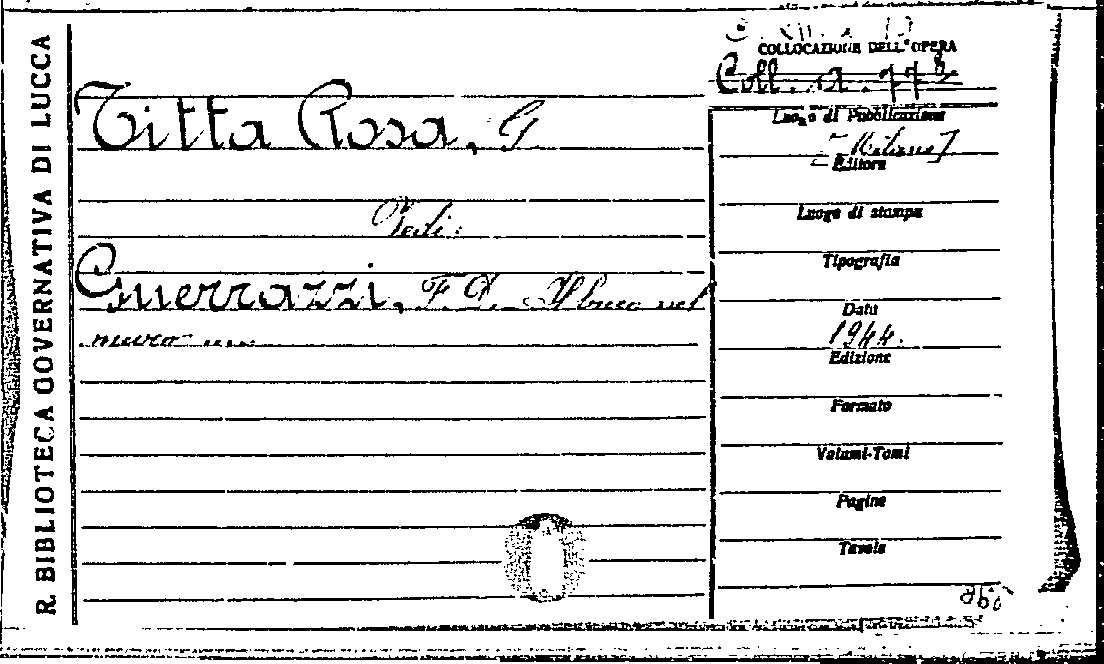 R. BIBLIOTECA GOVERNATIVA DI LUCCA
COLLOCAZIONE DELL'OPERA
Coll. a. 773
Titta Rosa, G.
Luogo di Pubblicazione
[Milano]
Editore
Luogo di stampa
Vedi:
Tipografia
Guerrazzi, F. D. Il buco nel
muro
Data
1944.
Edizione
Formato
Volumi-Tomi
Pagine
Tavole